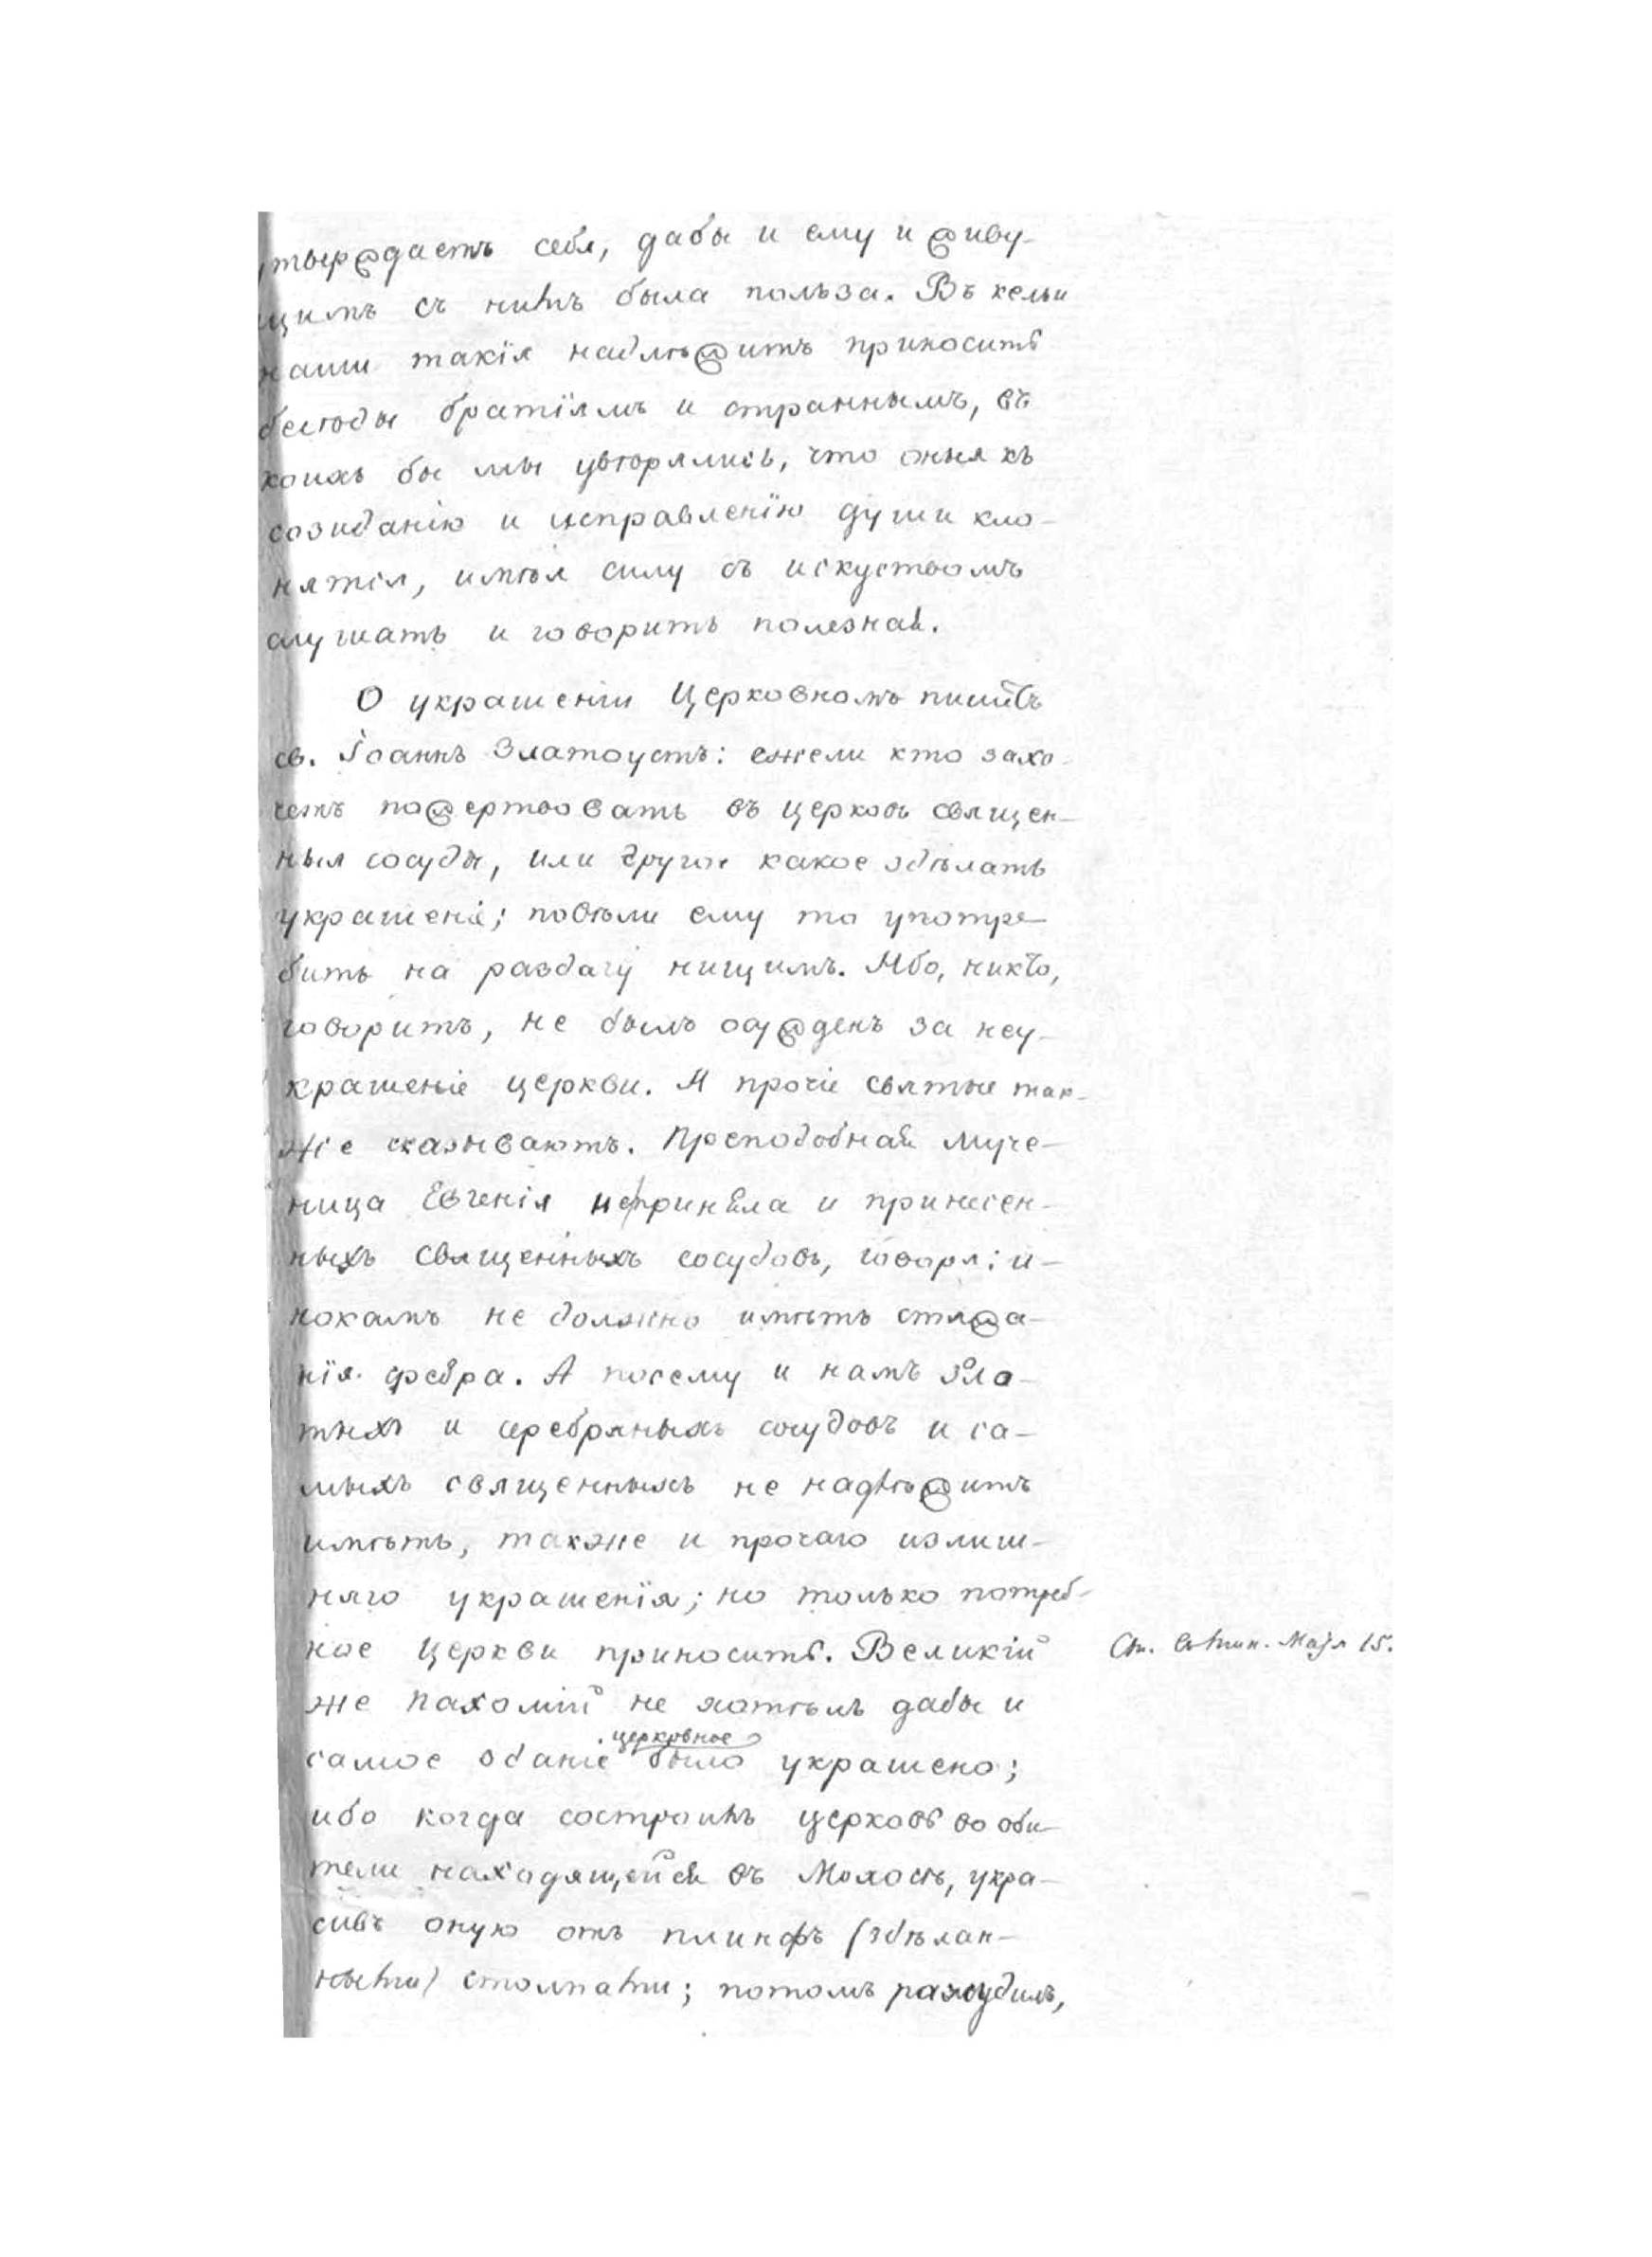 тверждаетъ себя, дабы и ему и живу-
щимъ съ нимъ была польза. Въ кельи
наши такія надлѣжитъ приносить
бесѣды братіямъ и страннымъ, въ
коихъ бы мы увѣрялись, что оныя къ
созиданію и исправленію души кло-
нятся, имѣя силу съ искуствомъ
слушать и говорить полезная.
О украшеніи Церковномъ пишетъ
св. Іоаннъ Златоустъ: ежели кто захо-
четъ пожертвовать въ церковь священ-
ныя сосуды, или другое какое здѣлать
украшеніе; повѣли ему то употре-
бить на раздачу нищимъ. Ибо, никто,
говоритъ, не былъ осужденъ за неу-
крашеніе церкви. И прочіе святые так-
же сказываютъ. Преподобная муче-
ница Евгенія не приняла и принесен-
ныхъ священныхъ сосудовъ, говоря: и-
нокамъ не должно имѣть стяжа-
нія сребра. А посему и намъ зла-
тыхъ и серебряныхъ сосудовъ и са-
мыхъ священныхъ не надлѣжитъ
имѣть, также и прочаго излиш-
няго украшенія; но только потреб-
ное Церкви приносить. Великій
Чт. Мин. Маія 15.
же Пахомій не хотѣлъ дабы и
церковное
самое зданіе было украшено;
ибо когда состроилъ церковь во оби-
тели находящейся въ Мохосѣ, укра-
сивъ оную отъ плинфъ (здѣлан-
ными) столпами; потомъ разсудилъ,